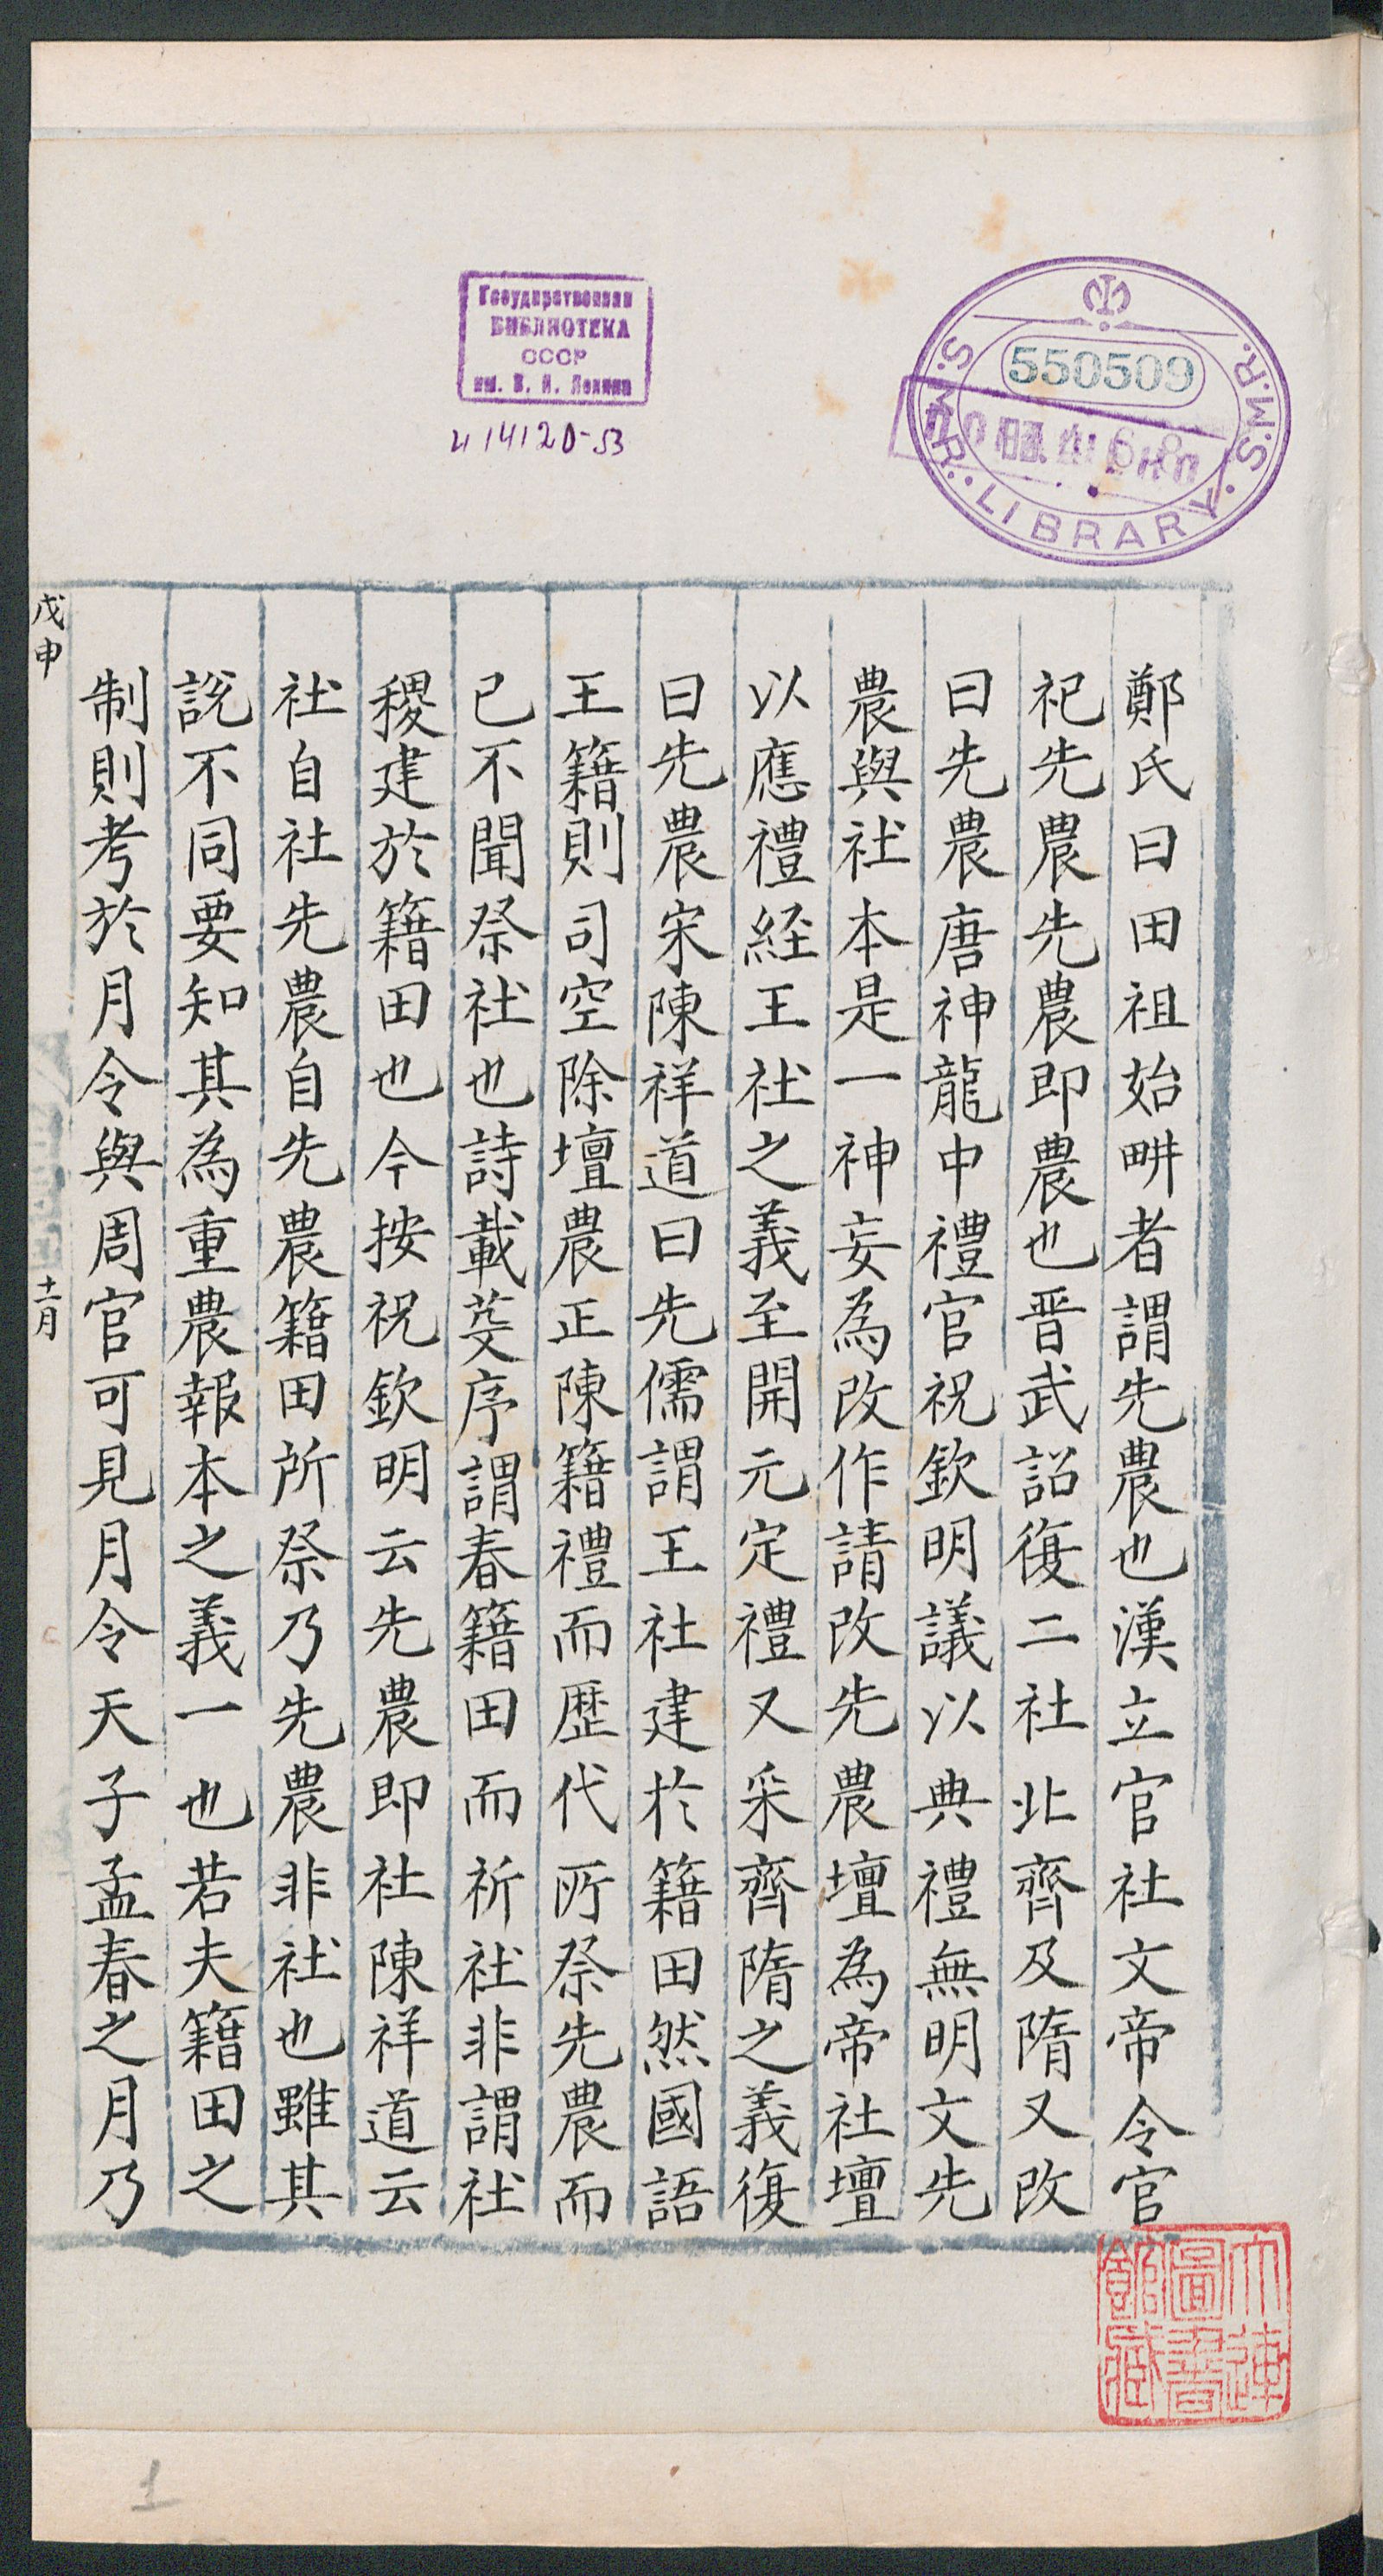 Государственная
БИБЛИОТЕКА
СССР
им. В. И. Ленина
и 14120-53
550509
S.M.R.. LIBRARY. S.M.R.
鄭氏曰田祖始畊者謂先農也漢立官社文帝令官
祀先農先農即農也晋武詔復二社北齊及隋又改
曰先農唐神龍中禮官祝欽明議以典禮無明文先
農與社本是一神妄為改作請改先農壇為帝社壇
以應禮経王社之義至開元定禮又采齊隋之義復
曰先農宋陳祥道曰先儒謂王社建於籍田然國語
王籍則司空除壇農正陳籍禮而歴代所祭先農而
已不聞祭社也詩載芟序謂春籍田而祈社非謂社
稷建於籍田也今按祝欽明云先農即社陳祥道云
社自社先農自先農籍田所祭乃先農非社也雖其
說不同要知其為重農報本之義一也若夫籍田之
制則考於月令與周官可見月令天子孟春之月乃
戊申
十一月
大連
圖書
館藏
1